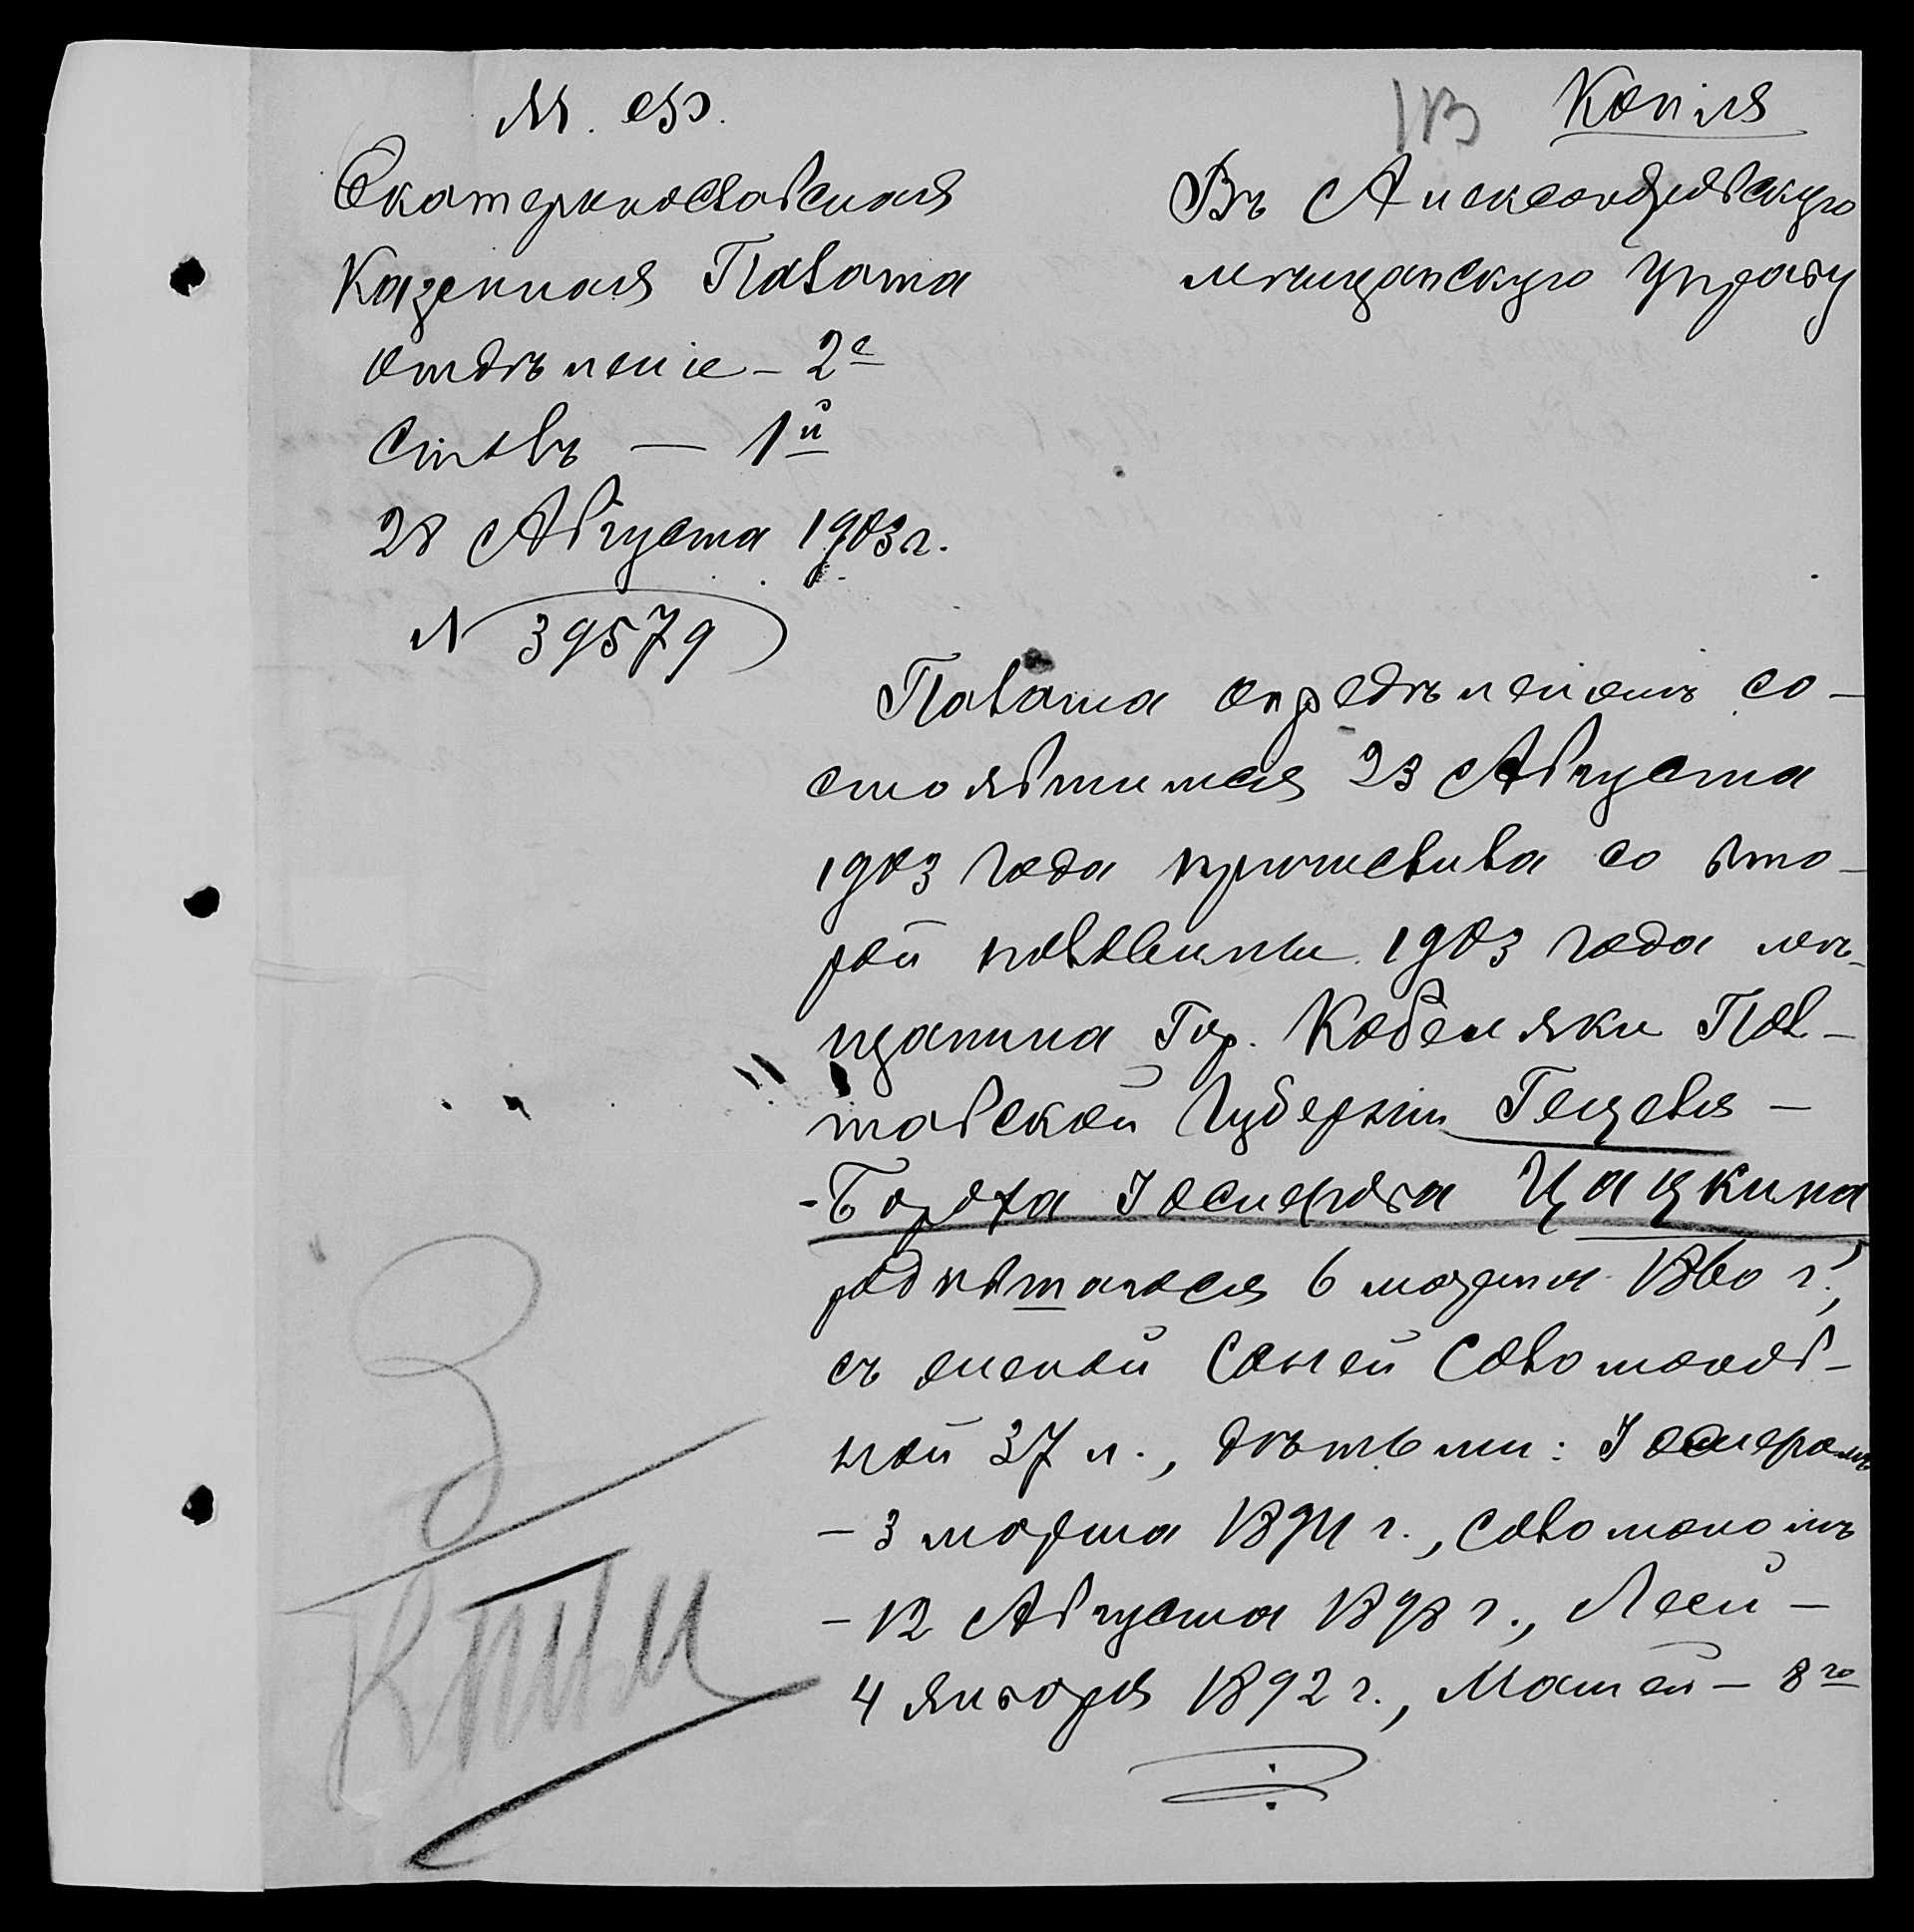 М. Ф.
Копія
Екатеринославская
Казенная Палата
отдѣленіе – 2е
столъ — 1й
28 Августа 1903 г.
№ 39579
Въ Александровскую
мѣщанскую управу
Палата опредѣленіемъ со-
стоявшимся 23 Августа
1903 года причислила со вто-
рой половины 1903 года мѣ-
щанина гор. Кобеляки Пол-
тавской губерніи Гецеля-
-Бороха Іосифова Цацкина
родившагося 6 марта 1860 г.,
съ женой Соней Соломонов-
ной 37 л., дѣтьми: Іосифомъ
– 3 марта 1894 г., Соломономъ
– 12 Августа 1898 г., Леей –
4 января 1892 г., Машей – 8го